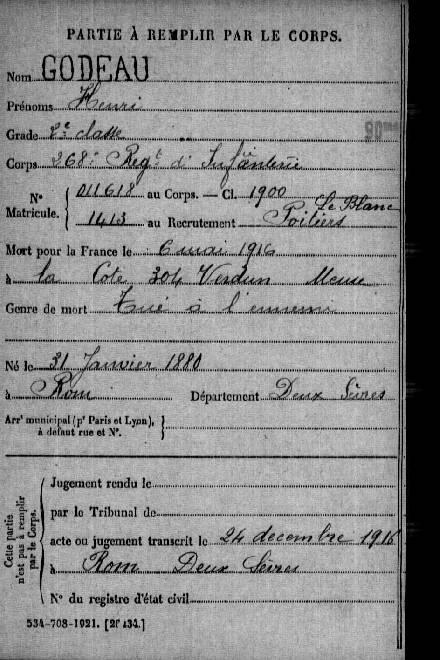 PARTIE À REMPLIR PAR LE CORPS.
Nom GODEAU
Prénoms Henri
Grade 2e classe
Corps 268e Regt d'Infanterie
N° Matricule. { 011618 au Corps. — Cl. 1900 Le Blanc
1413 au Recrutement Poitiers
Mort pour la France le 6 mai 1916
à la Cote 304 Verdun Meuse
Genre de mort Tué à l'ennemi
Né le 31 Janvier 1880
à Rom Département Deux Sèvres
Arrt municipal (pr Paris et Lyon),
à défaut rue et N°.
Cette partie n'est pas à remplir par le Corps.
Jugement rendu le
par le Tribunal de
acte ou jugement transcrit le 24 decembre 1916
à Rom Deux Sèvres
N° du registre d'état civil
534-708-1921. [26434.]